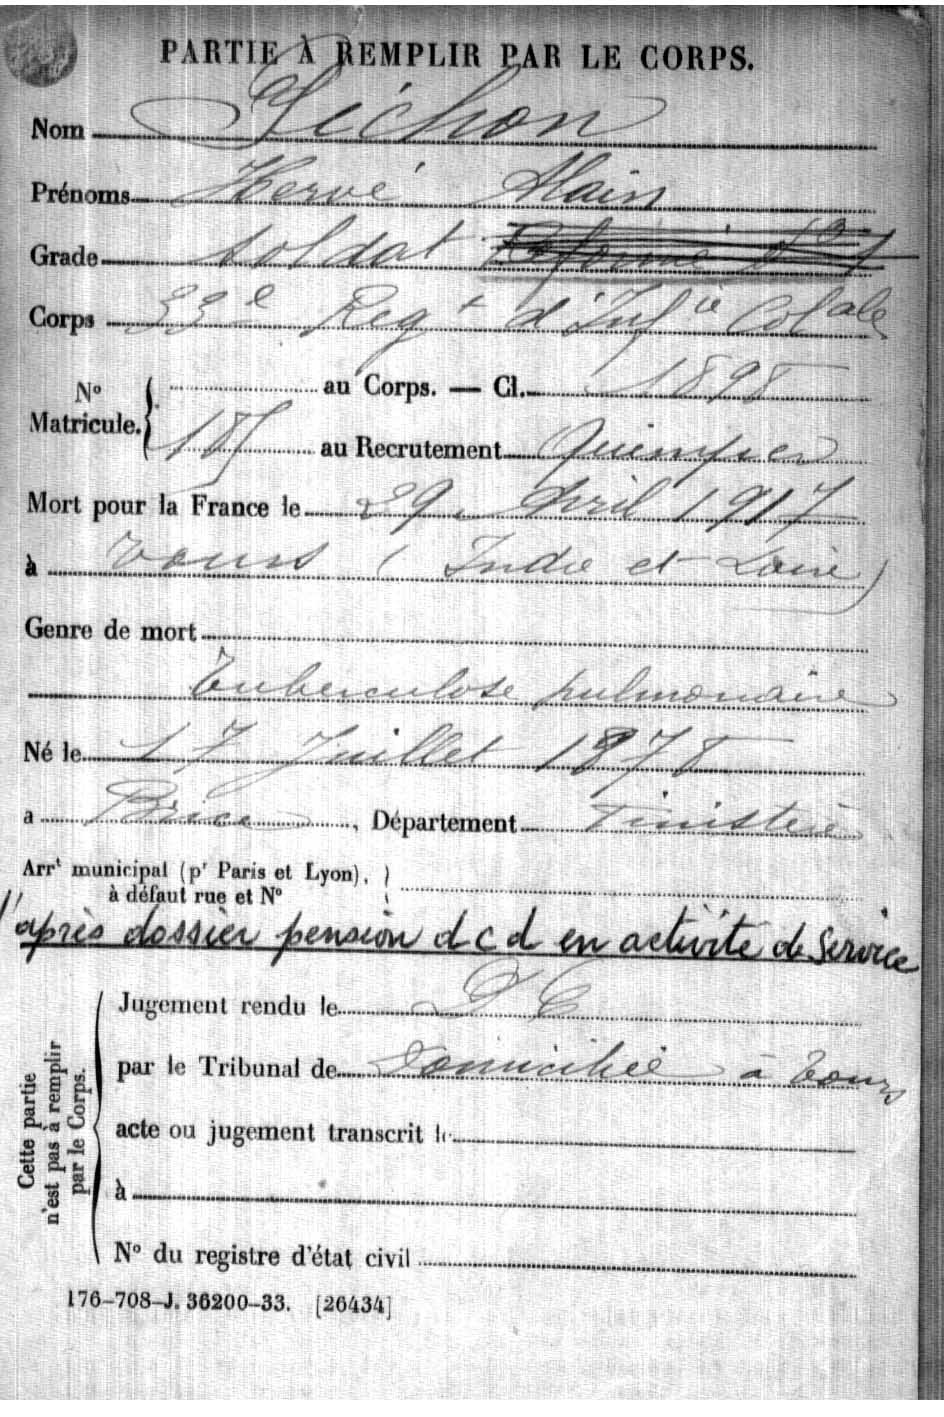 PARTIE À REMPLIR PAR LE CORPS.
Nom
Prénoms Hervé Alain
Grade Soldat Réformé n° 1
Corps 33e Regt d'Infie Colale
No Matricule. au Corps. — Cl. 1898
187 au Recrutement Quimper
Mort pour la France le 29 Avril 1917
à Tours (Indre et Loire)
Genre de mort
Tuberculose pulmonaire
Né le 17 Juillet 1878
a Briec, Département Finistère
Arrt municipal (pr Paris et Lyon),
à défaut rue et No
d'après dossier pension dcd en activité de Service
Cette partie n'est pas à remplir par le Corps.
Jugement rendu le D C
par le Tribunal de Domicilié à Tours
acte ou jugement transcrit le
à
No du registre d'état civil
176-708-J. 36200-33. [26434]